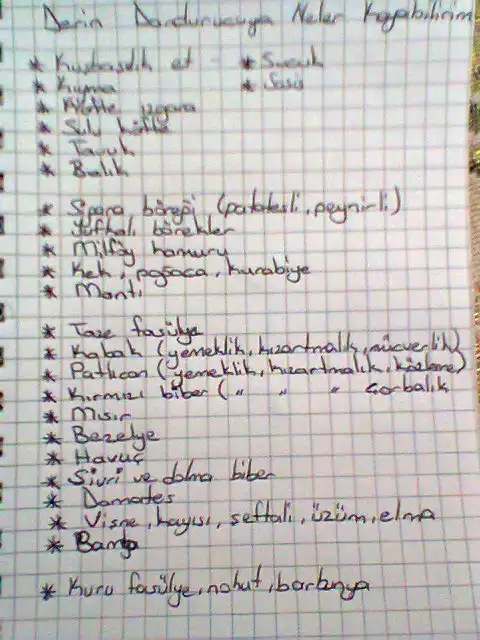 Derin Dondurucuya Neler Koyabilirim
* Kuşbaşılık et * Sucuk
* Kıyma * Sosis
* Köfte ızgara
* Sulu köfte
* Tavuk
* Balık
* Sigara böreği (patatesli, peynirli)
* Yufkalı börekler
* Milföy hamuru
* Kek, poğaca, kurabiye
* Mantı
* Taze fasülye
* Kabak (yemeklik, kızartmalık, mücverlik)
* Patlıcan (yemeklik, kızartmalık, közleme)
* Kırmızı biber ( " " " çorbalık
* Mısır
* Bezelye
* Havuç
* Sivri ve dolma biber
* Domates
* Vişne, kayısı, şeftali, üzüm, elma
* Bamya
* Kuru fasülye, nohut, barbunya